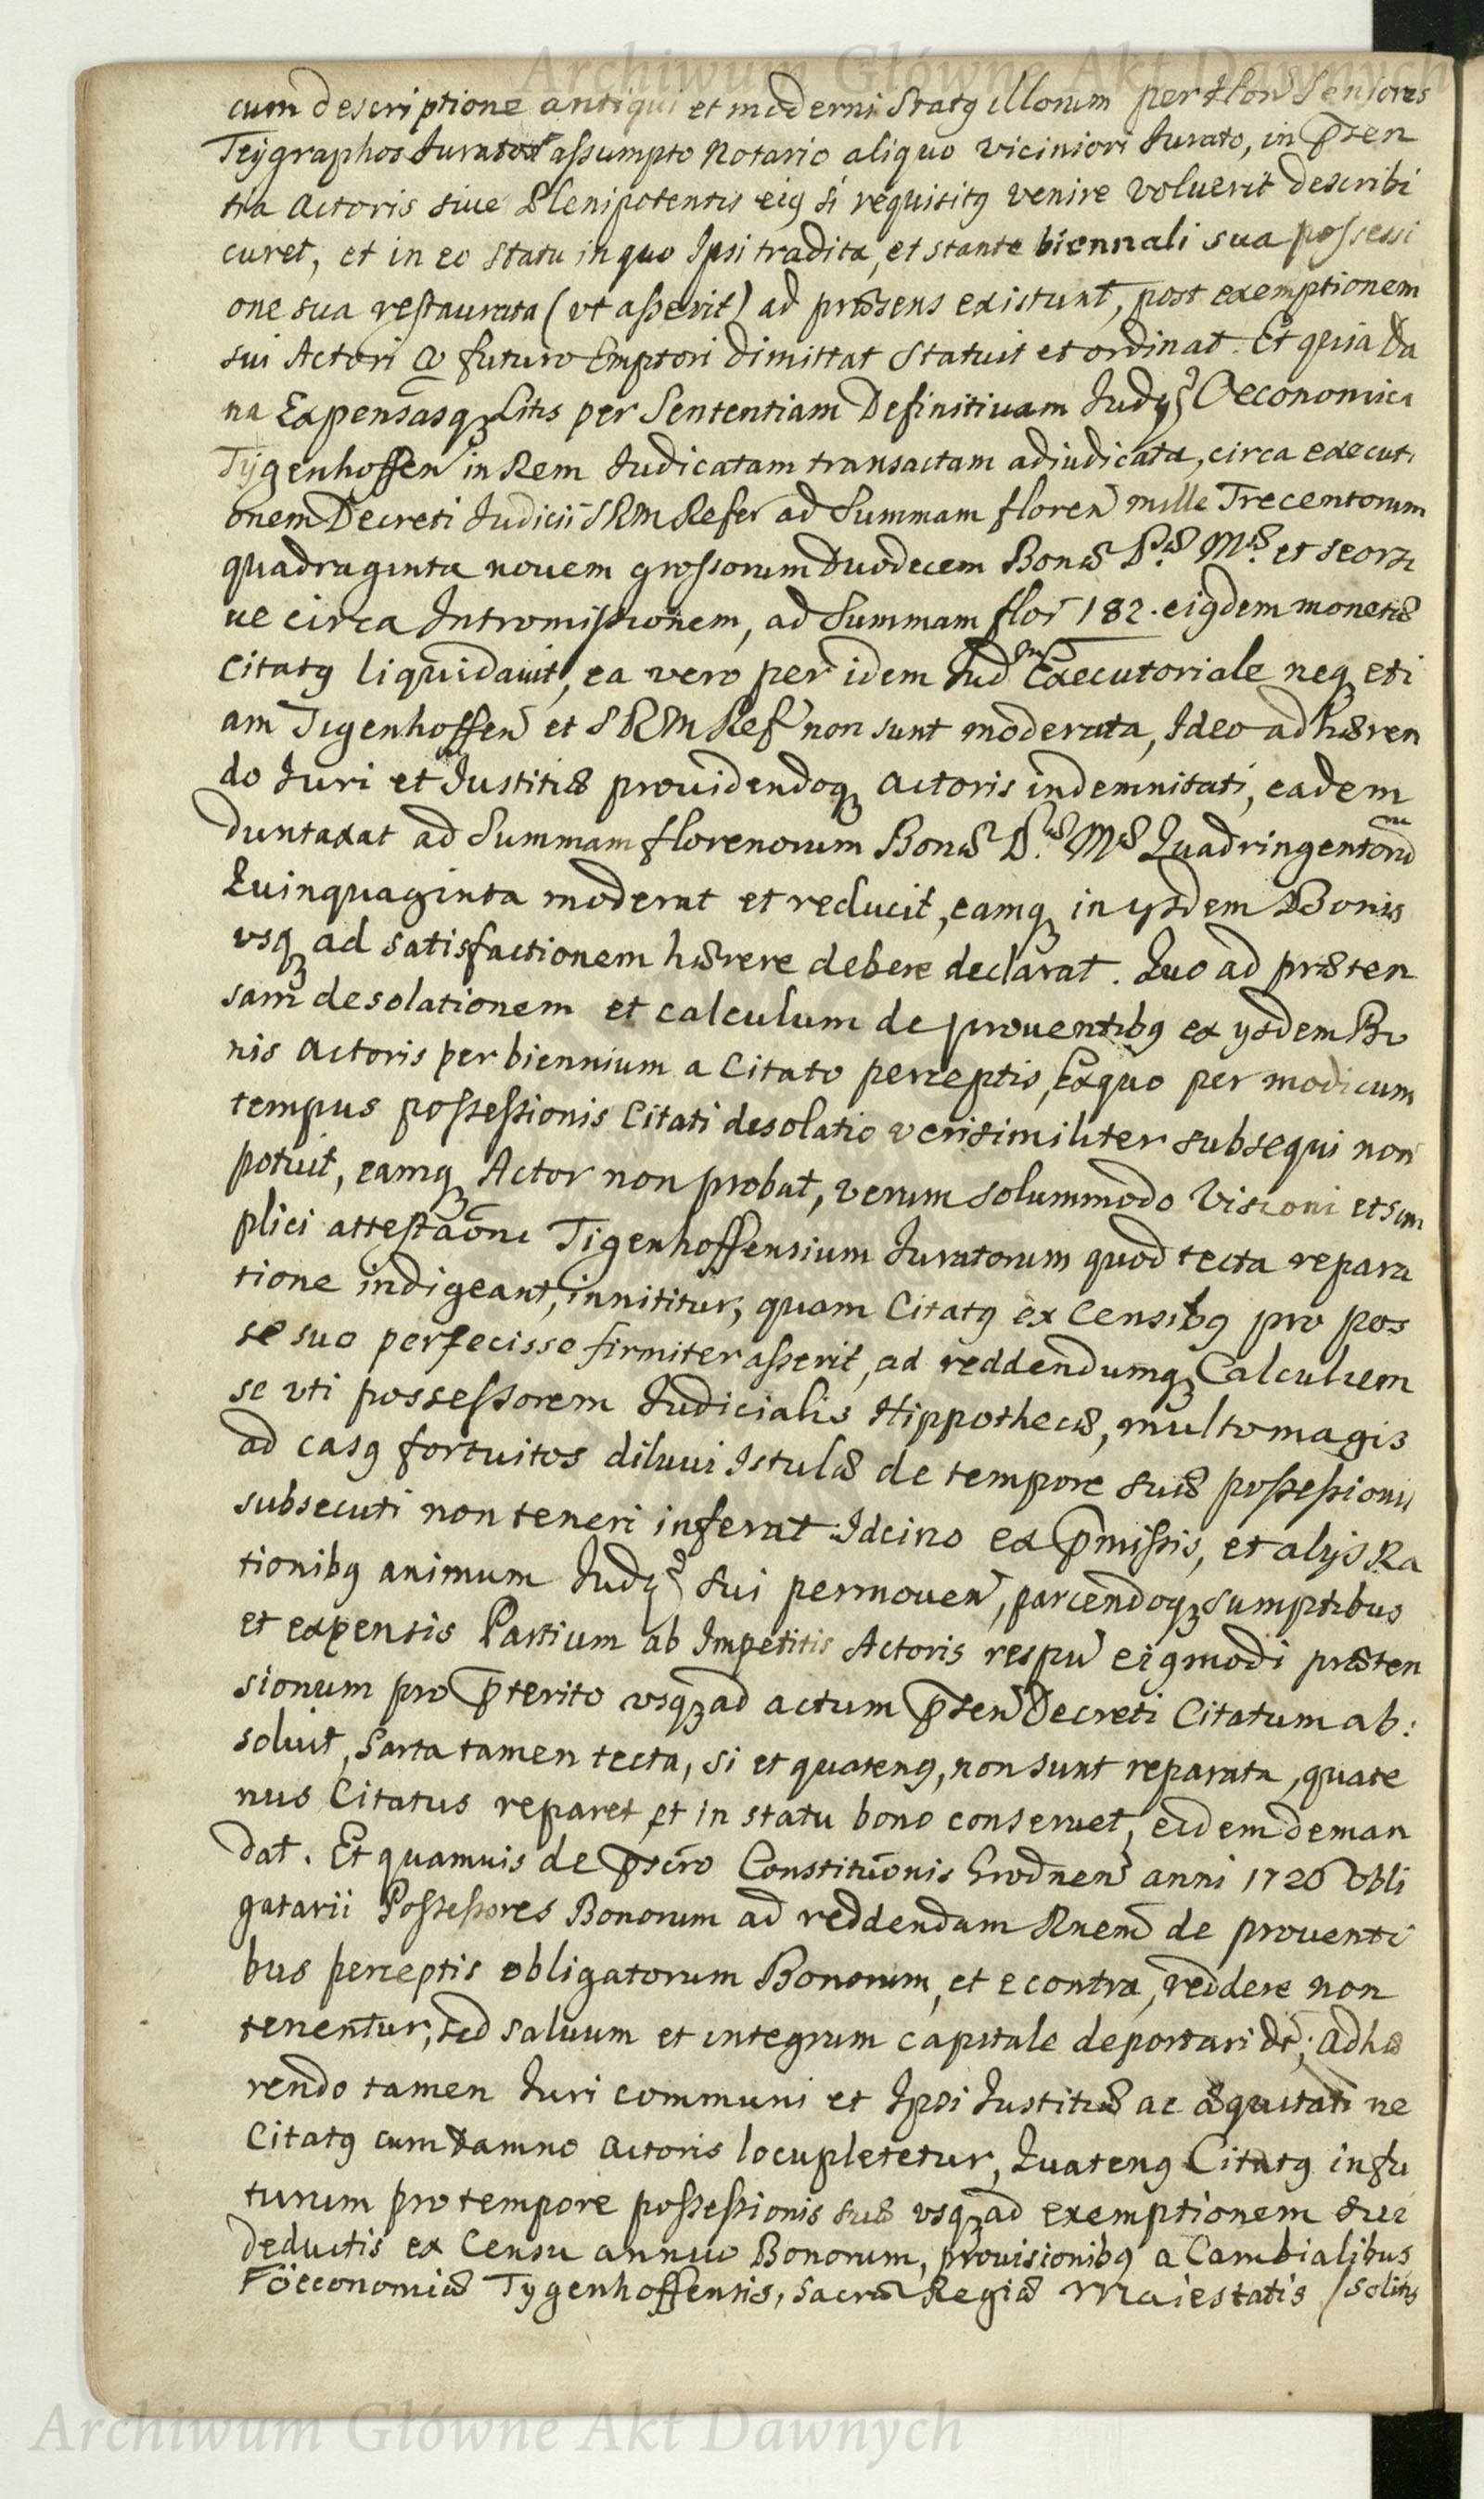 Archiwum Główne Akt Dawnych
cum descriptione antiqui et moderni Statꝯ illorum per Hon̄ Seniores
Teÿgraphos Juratos assumpto Notario aliquo viciniori Jurato, in p̄sen
tia Actoris sive Plenipotentis eiꝯ si requisitꝯ venire voluerit describi
curet, et in eo statu in quo Ipsi tradita, et stante biennali sua possessi
one sua restaurata (vt asserit) ad præsens existunt, post exemptionem
sui Actori futuro Emptori dimittat Statuit et ordinat. Et quia Da
na Expensasqꝫ Litis per Sententiam Definitivam Oeconomici
Tÿgenhoffen̄ in Rem Judicatam transactam adiudicata, circa executi
onem Decreti Judicii SRM Refer̄ ad Summam floren̄ mille Trecentorum
quadraginta novem grossorum Duodecem Bonæ P.æ M.æ et seorsi
ve circa Intromissionem, ad Summam flor̄ 182. eiꝯdem monetæ
Citatꝯ liquidavit, ea vero per idem Judm Executoriale neqꝫ eti
am Tigenhoffen̄ et SRM Ref̄ non sunt moderata, Ideo adhæren
do Juri et Justitiæ providendoqꝫ Actoris indemnitati, eadem
duntaxat ad Summam florenorum Bonæ P.æ Mæ Quadringentorum
Quinquaginta moderat et reducit, eamqꝫ in ysdem Bonis
vsqꝫ ad satisfactionem hærere debere declarat. Quo ad præten
sam desolationem et calculum de proventibꝯ ex ysdem Bo
nis Actoris per biennium a Citato perceptis, Exquo per modicum
tempus possessionis Citati desolatio verisimiliter subsequi non
potuit, eamqꝫ Actor non probat, verum solummodo Visioni et sim
plici attestaōni Tigenhoffensium Juratorum quod tecta repara
tione indigeant, innititur, quam Citatꝯ ex Censibꝯ pro pos
se suo perfecisse firmiter asserit, ad reddendumqꝫ Calculum
se vti possessorem Judicialis Hippothecæ, multo magis
ad casꝯ fortuitos diluvi Istulæ de tempore suæ possessionis
subsecuti non teneri inferat. Idcirco ex p̄missis, et alÿs Ra
tionibꝯ animum sui permoven̄, parcendoqꝫ sumptibus
et expensis Partium ab Impetitis Actoris respu̅ eiꝯmodi præten
sionum pro p̄terito vsqꝫ ad actum p̄sen̄ Decreti Citatum ab:
solvit, Sarta tamen tecta, si et quatenꝯ, non sunt reparata, quate
nus Citatus reparet et in statu bono conservet, eidem deman
dat. Et quamvis de p̄scr̄o Constitu̅onis Grodnen̄ anni 1726 Obli
gatarii Possessores Bonorum ad reddendam Rnem̄ de proventi
bus perceptis obligatorum Bonorum, et econtra, reddere non
tenentur, sed salvum et integrum capitale deportari dt̄; Adhæ
rendo tamen Juri communi et Ipsi Justitiæ ac æquitati ne
Citatꝯ cum damno Actoris locupletetur, Quatenꝯ Citatꝯ in fu
turum pro tempore possessionis suæ vsqꝫ ad exemptionem sui
deductis ex Censu annuo Bonorum, provisionibꝯ a Cambialibus
Oeconomiæ Tygenhoffensis, Sacræ Regiæ Maiestatis / solitis
Archiwum Główne Akt Dawnych